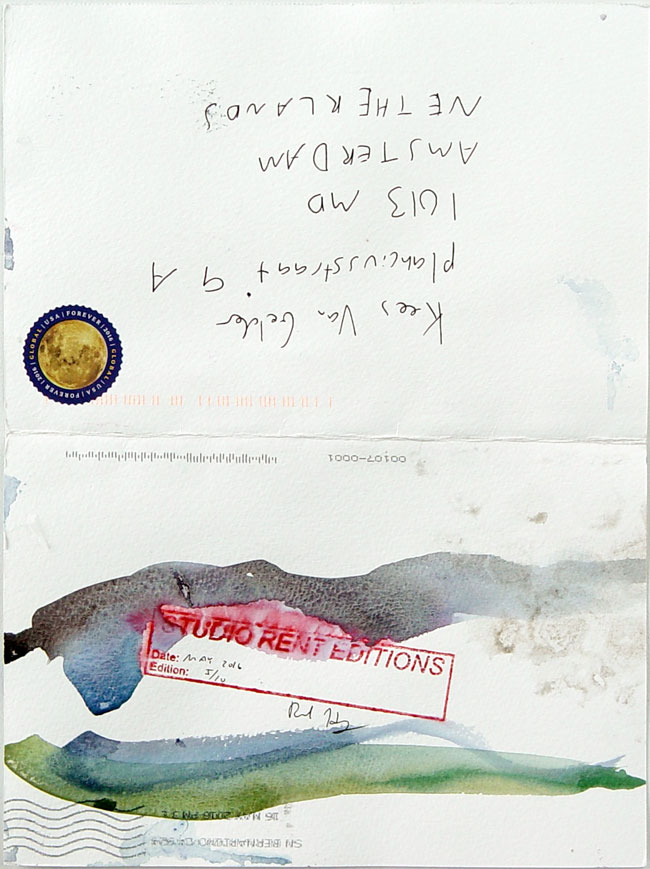 Kees Van Gelder
Planciusstraat 9 A
1013 MD
AMSTERDAM
NETHERLANDS
GLOBAL | USA | FOREVER | 2016 | GLOBAL | USA | FOREVER | 2016
00107-0001
STUDIO RENT EDITIONS
Date: MAY 2016
Edition: I/10
06 MAY 2016 PM
SN BERNARDINO CA